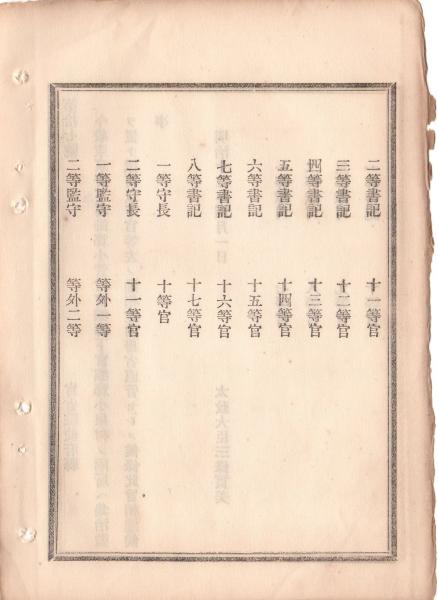 二等書記 十一等官
三等書記 十二等官
四等書記 十三等官
五等書記 十四等官
六等書記 十五等官
七等書記 十六等官
八等書記 十七等官
一等守長 十等官
二等守長 十一等官
一等監守 等外一等
二等監守 等外二等